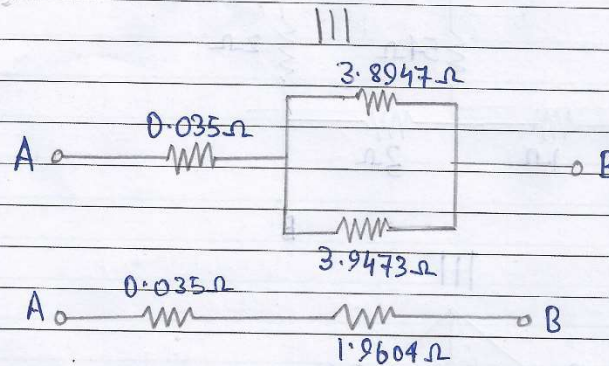 |||
3.8947Ω
0.035Ω
A
B
3.9473Ω
0.035Ω
A
B
1.9604Ω